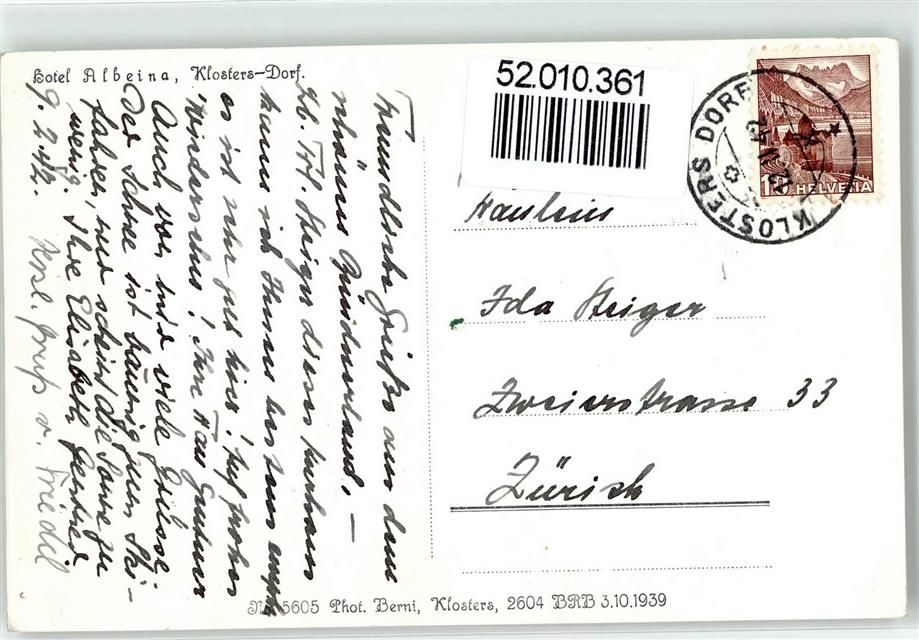 Hotel Albeina, Klosters-Dorf.
52.010.361
KLOSTERS DORF
10 HELVETIA
Freundliche Grüsse aus dem
schönen Bündnerland. –
Frl. Steiger dieses Kurhaus
kann ich Ihnen bestens
es ist sehr gut hier! Auf frohes
Wiedersehn! Ihre Frau
Auch von mir viele Grüsse
Der Schnee ist traurig zum Ski-
fahren, und scheint die Sonne zu
wenig. Ihre Elisabeth
9. 2. 42. Gruss v. Friedel
Fräulein
Ida Steiger
Zweierstrasse 33
Zürich
No 5605 Phot. Berni, Klosters, 2604 BRB 3.10.1939